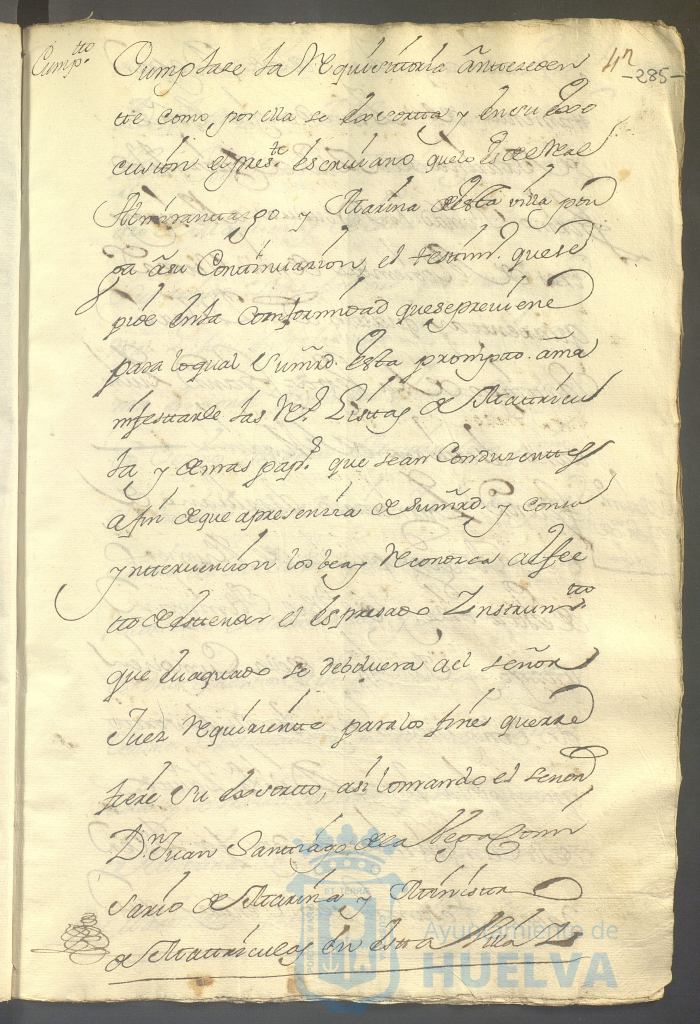 Cump.tto
47
-285-
Cumplase la Requisitoria anteceden
tte como por ella se exsorta y en su exe
cusion el pres.te escrivano que lo es de Real
Almirantazgo y Marina de esta villa pon
ga a su Continuasion el testim.o que se
pide en la Conformidad que se previene
para lo qual su mrd. esta prompto a ma
nifesttarle las R.s Listtas de Mattricu
la y demas pap.s que sean Conduzenttes
a fin de que a presenzia de su mrd. y con su
ynttervencion los vea y reconozca al efec
tto de estender el espresado Instrum.tto
que evaquado se debolvera al señor
Juez requiriente para los fines que re
fiere su exsortto, asi lo mando el señor
D.n Juan Santtiago de la Vega Comi
sario de Marina y Ministro
de Mattriculas en estta Villa
Ayuntamiento de
HUELVA